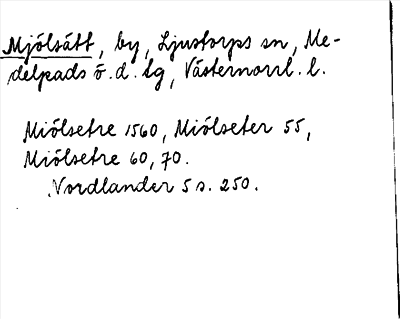 Mjölsätt, by, Ljustorps sn, Me-
delpads ö. d. tg, Västernorrl. l.
Miölsetre 1560, Miölseter 55,
Miölsetre 60, 70.
Nordlander 5 s. 250.